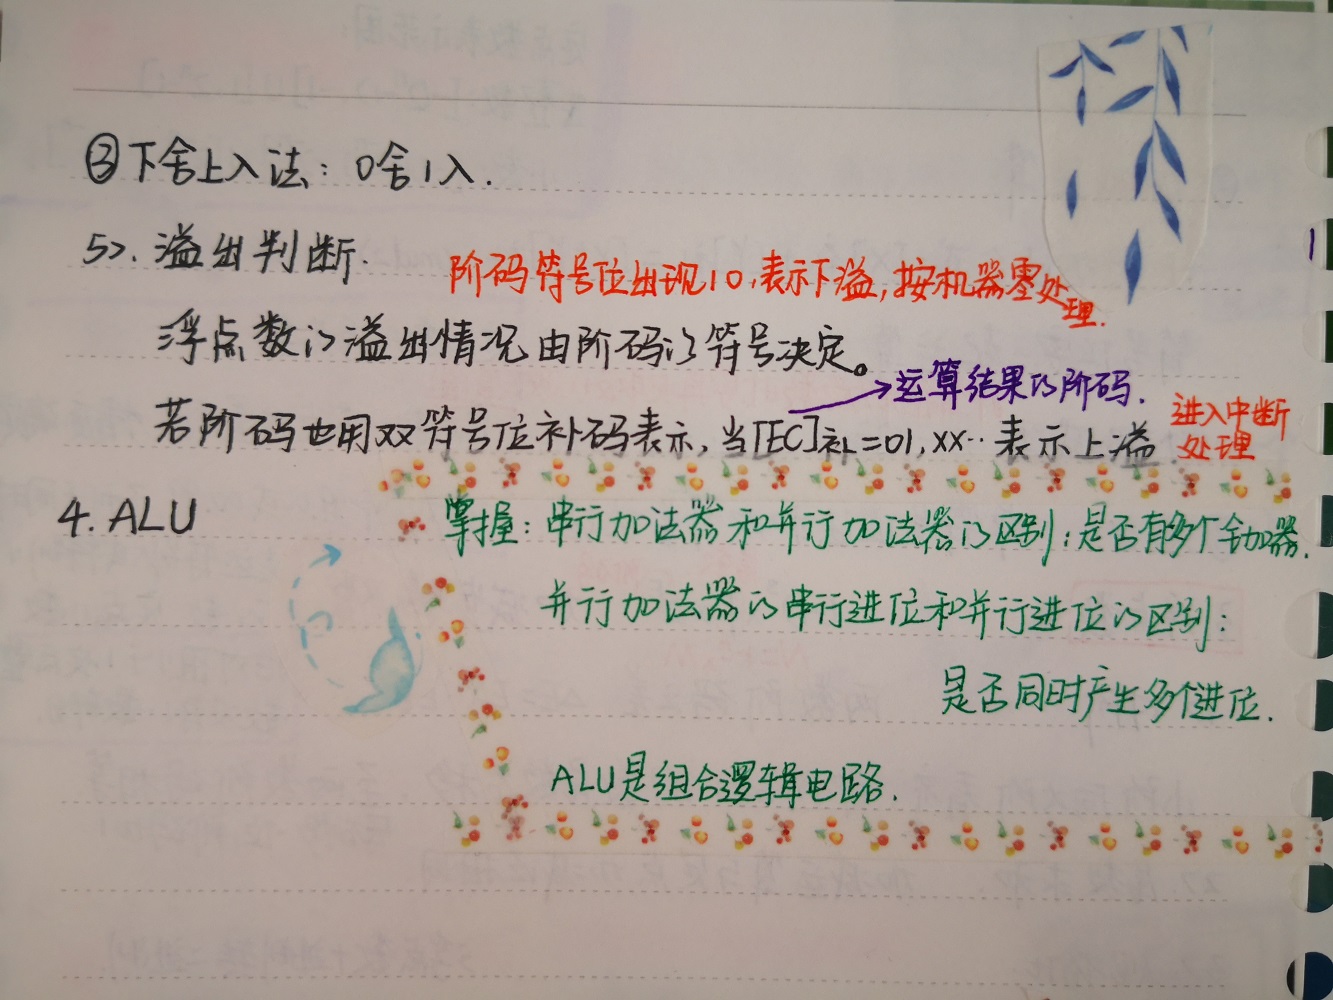 ③下舍上入法：0舍1入.
5>. 溢出判断.
阶码符号位出现10,表示下溢,按机器零处理.
浮点数的溢出情况由阶码的符号决定。
→运算结果的阶码.
若阶码也用双符号位补码表示,当[EC]补=01,XX·· 表示上溢
进入中断
处理
4. ALU
掌握：串行加法器和并行加法器的区别：是否有多个全加器.
并行加法器的串行进位和并行进位的区别：
是否同时产生多个进位.
ALU是组合逻辑电路.